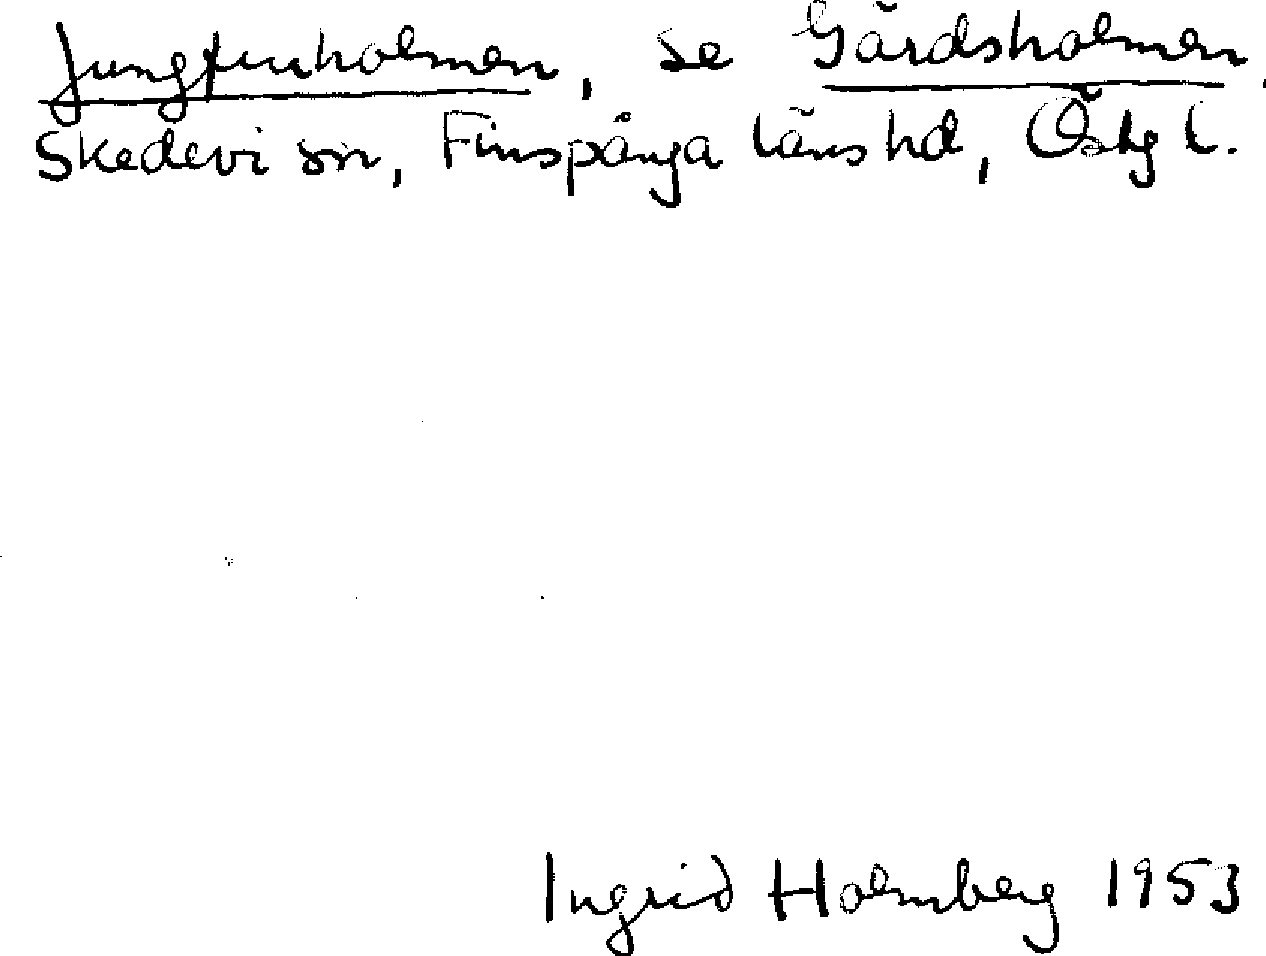 Jungfruholmen, se Gårdsholmen.
Skedevi sn, Finspånga läns hd, Östg l.
Ingrid Holmberg 1953